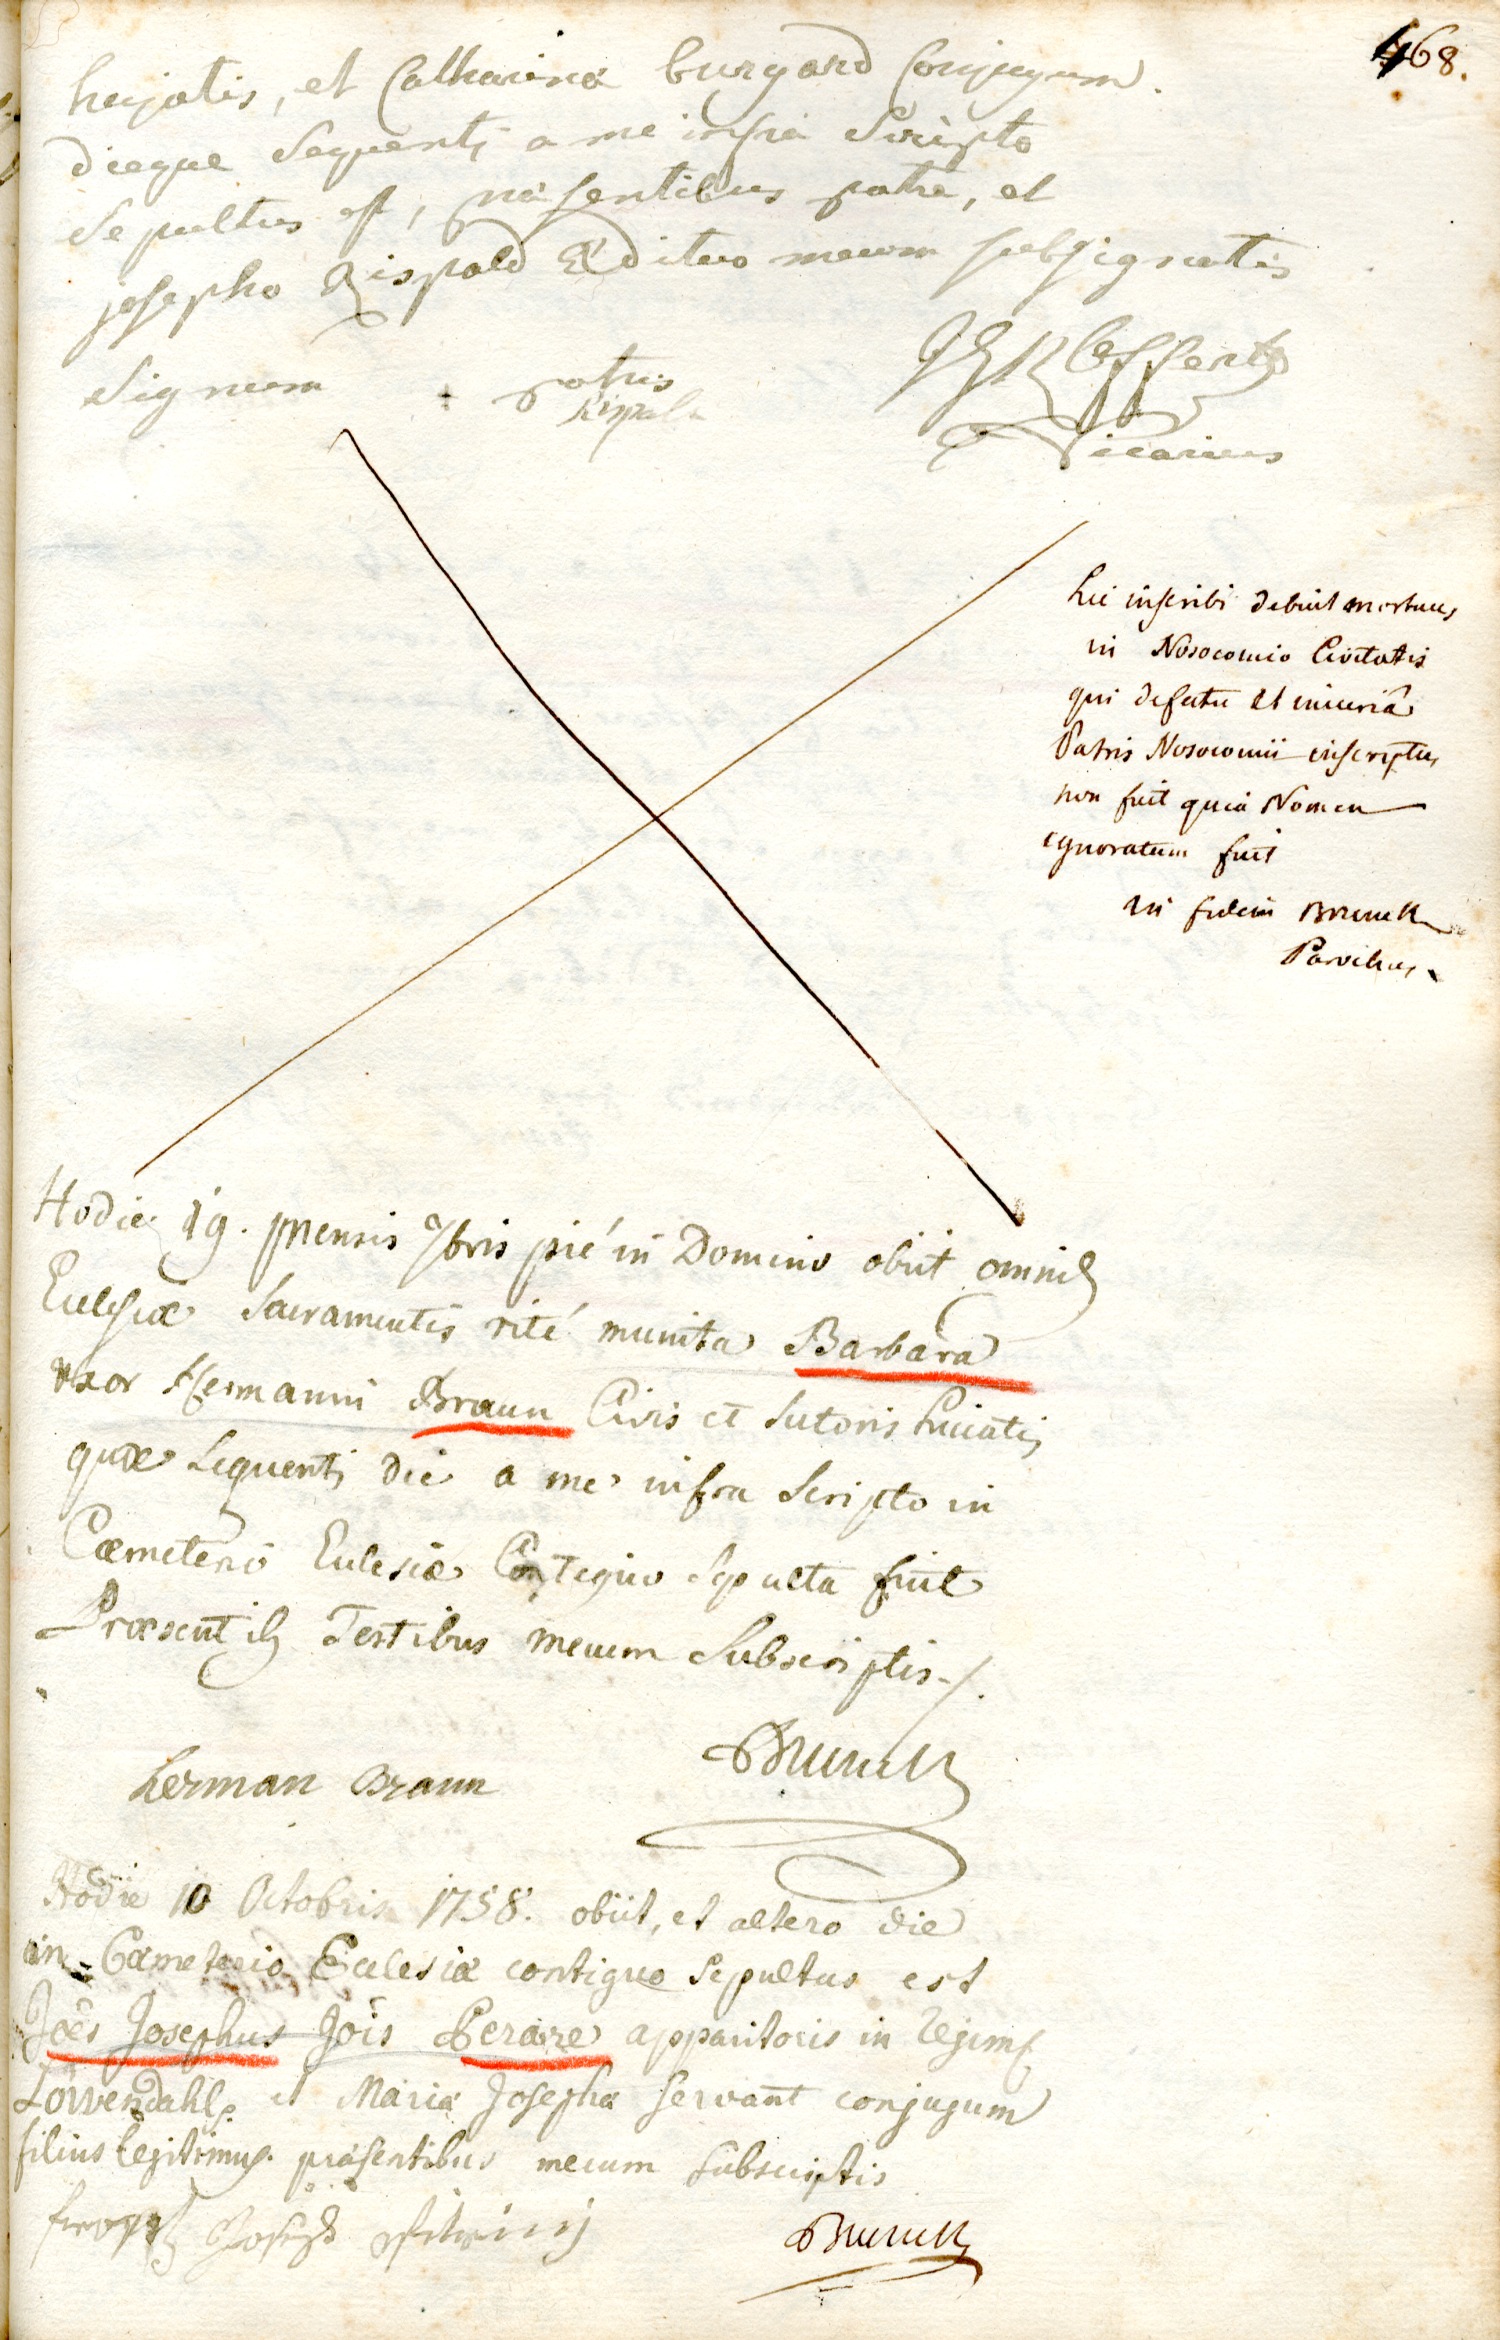 468.
hujatis, et Catharinæ burgard Conjugum.
dieque Sequenti a me infra Scripto
Sepultus est, præsentibus patre, et
josepho Rispald Ædituo mecum subsignatis
Signum + patris
Rispald
Vicarius
hic inscribi debuit mortuus
in Nosocomio Civitatis
qui defectu et incuriâ
Patris Nosocomii inscriptus
non fuit quia Nomen
ignoratum fuit
in fidem Brunck
Parochus
Hodie 19. mensis 7bris pié in Domino obiit omnib
Ecclesiæ Sacramentis rité munita Barbara
uxor Hermanni Braun Civis et Sutoris huiatis
quæ Sequenti die a me infra Scripto in
Cæmeterio Ecclesiæ Contiguo Sepulta fuit
Præsentib Testibus mecum Subscriptis./.
herman Braun
Brunck
Hodie 10 Octobris 1758. obiit, et altero die
in Cæmeterio Ecclesiæ contiguo Sepultus est
Joẽs Josephus Jõis Peraire apparitoris in Regim
Löwendahl et Mariæ Josepha servant conjugum
filius legitimus. præsentibus mecum subscriptis
Joseph
Brunck